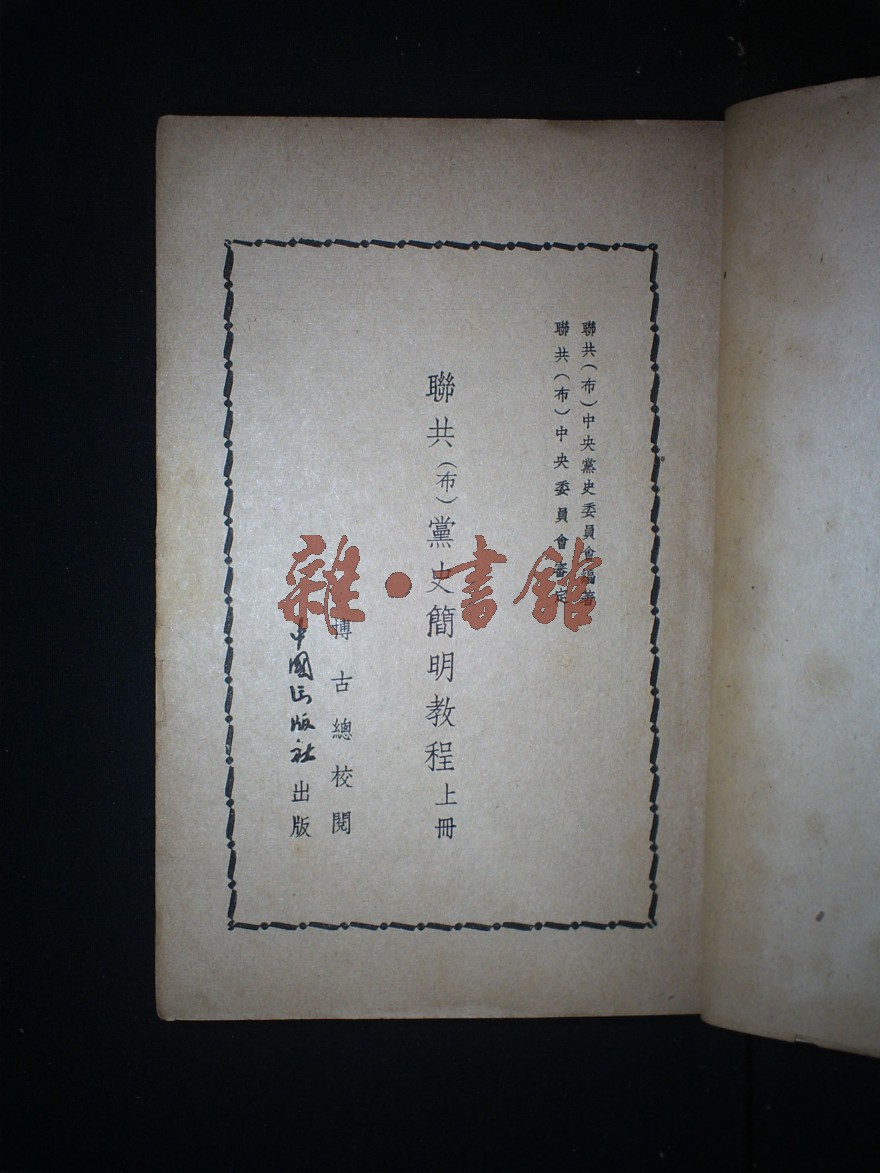 聯共（布）中央黨史委員會編著
聯共（布）中央委員會審定
聯共（布）黨史簡明教程上冊
博古總校閱
中國出版社出版
雜·書館